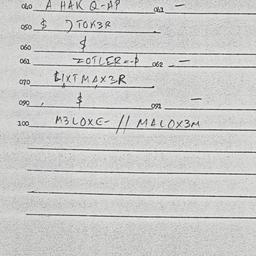 040 A HAK Q-AP 041 —
050 $ ƆTOK3R
060 $
061 ZOTLER=-$ 062 —
070 LIXTMAX3R
090 $ 091 —
100 M3LOXE- // MALOX3M